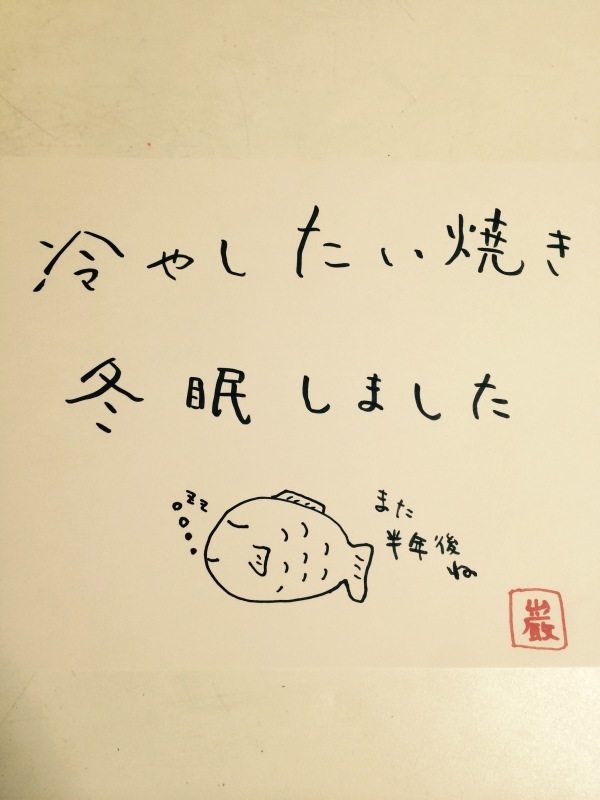 冷やしたい焼き
冬眠しました
zzz
また
半年後
ね
巌